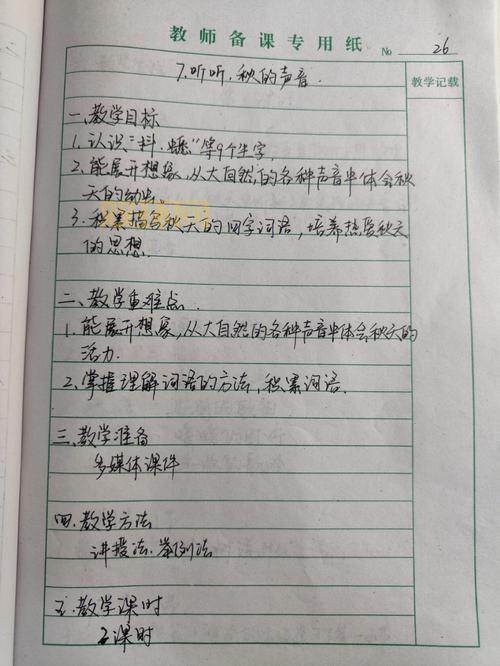 教师备课专用纸 No 26
7.听听,秋的声音
教学记载
一、教学目标
1.认识“抖、蟋”等9个生字.
2.能展开想象,从大自然的各种声音中体会秋
天的
3.积累描写秋天的四字词语,培养热爱秋天
的思想.
二、教学重难点.
1.能展开想象,从大自然的各种声音中体会秋天的
活力.
2.掌握理解词语的方法,积累词语.
三、教学准备
多媒体课件
四.教学方法
讲授法.举例法
五.教学课时
2课时